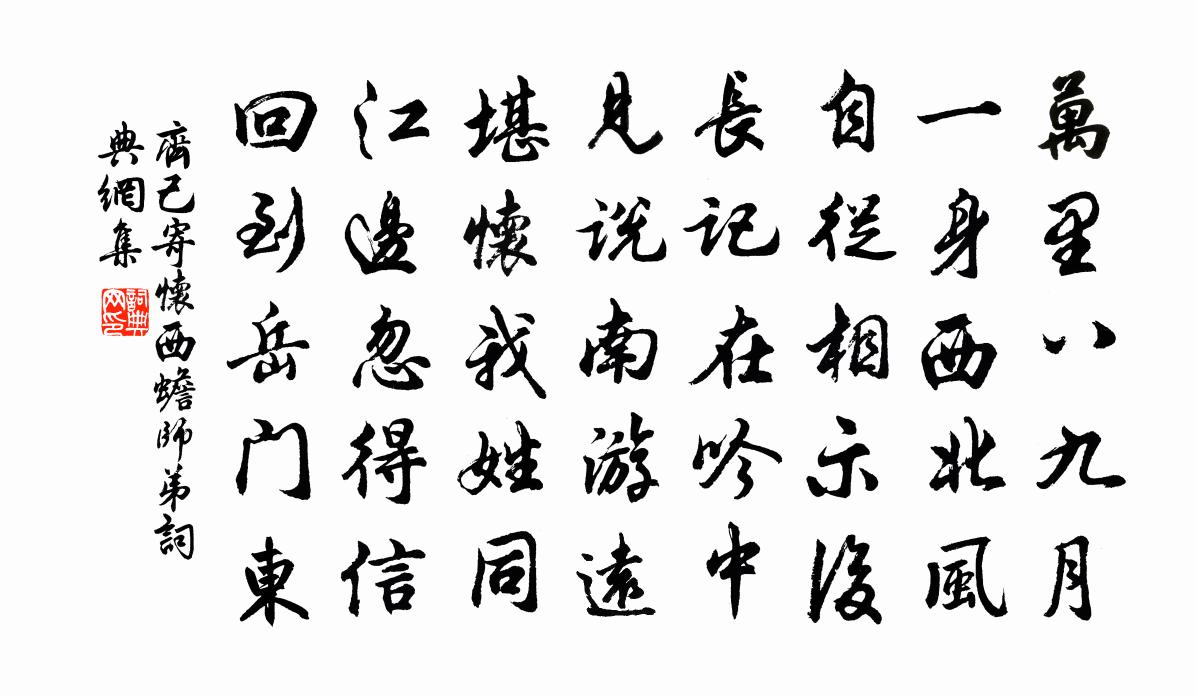 萬里八九月
一身西北風
自從相示後
長記在吟中
見說南游遠
堪懷我姓同
江邊忽得信
回到岳門東
齊己寄懷西蟾師弟詞
典網集
詞典
网印